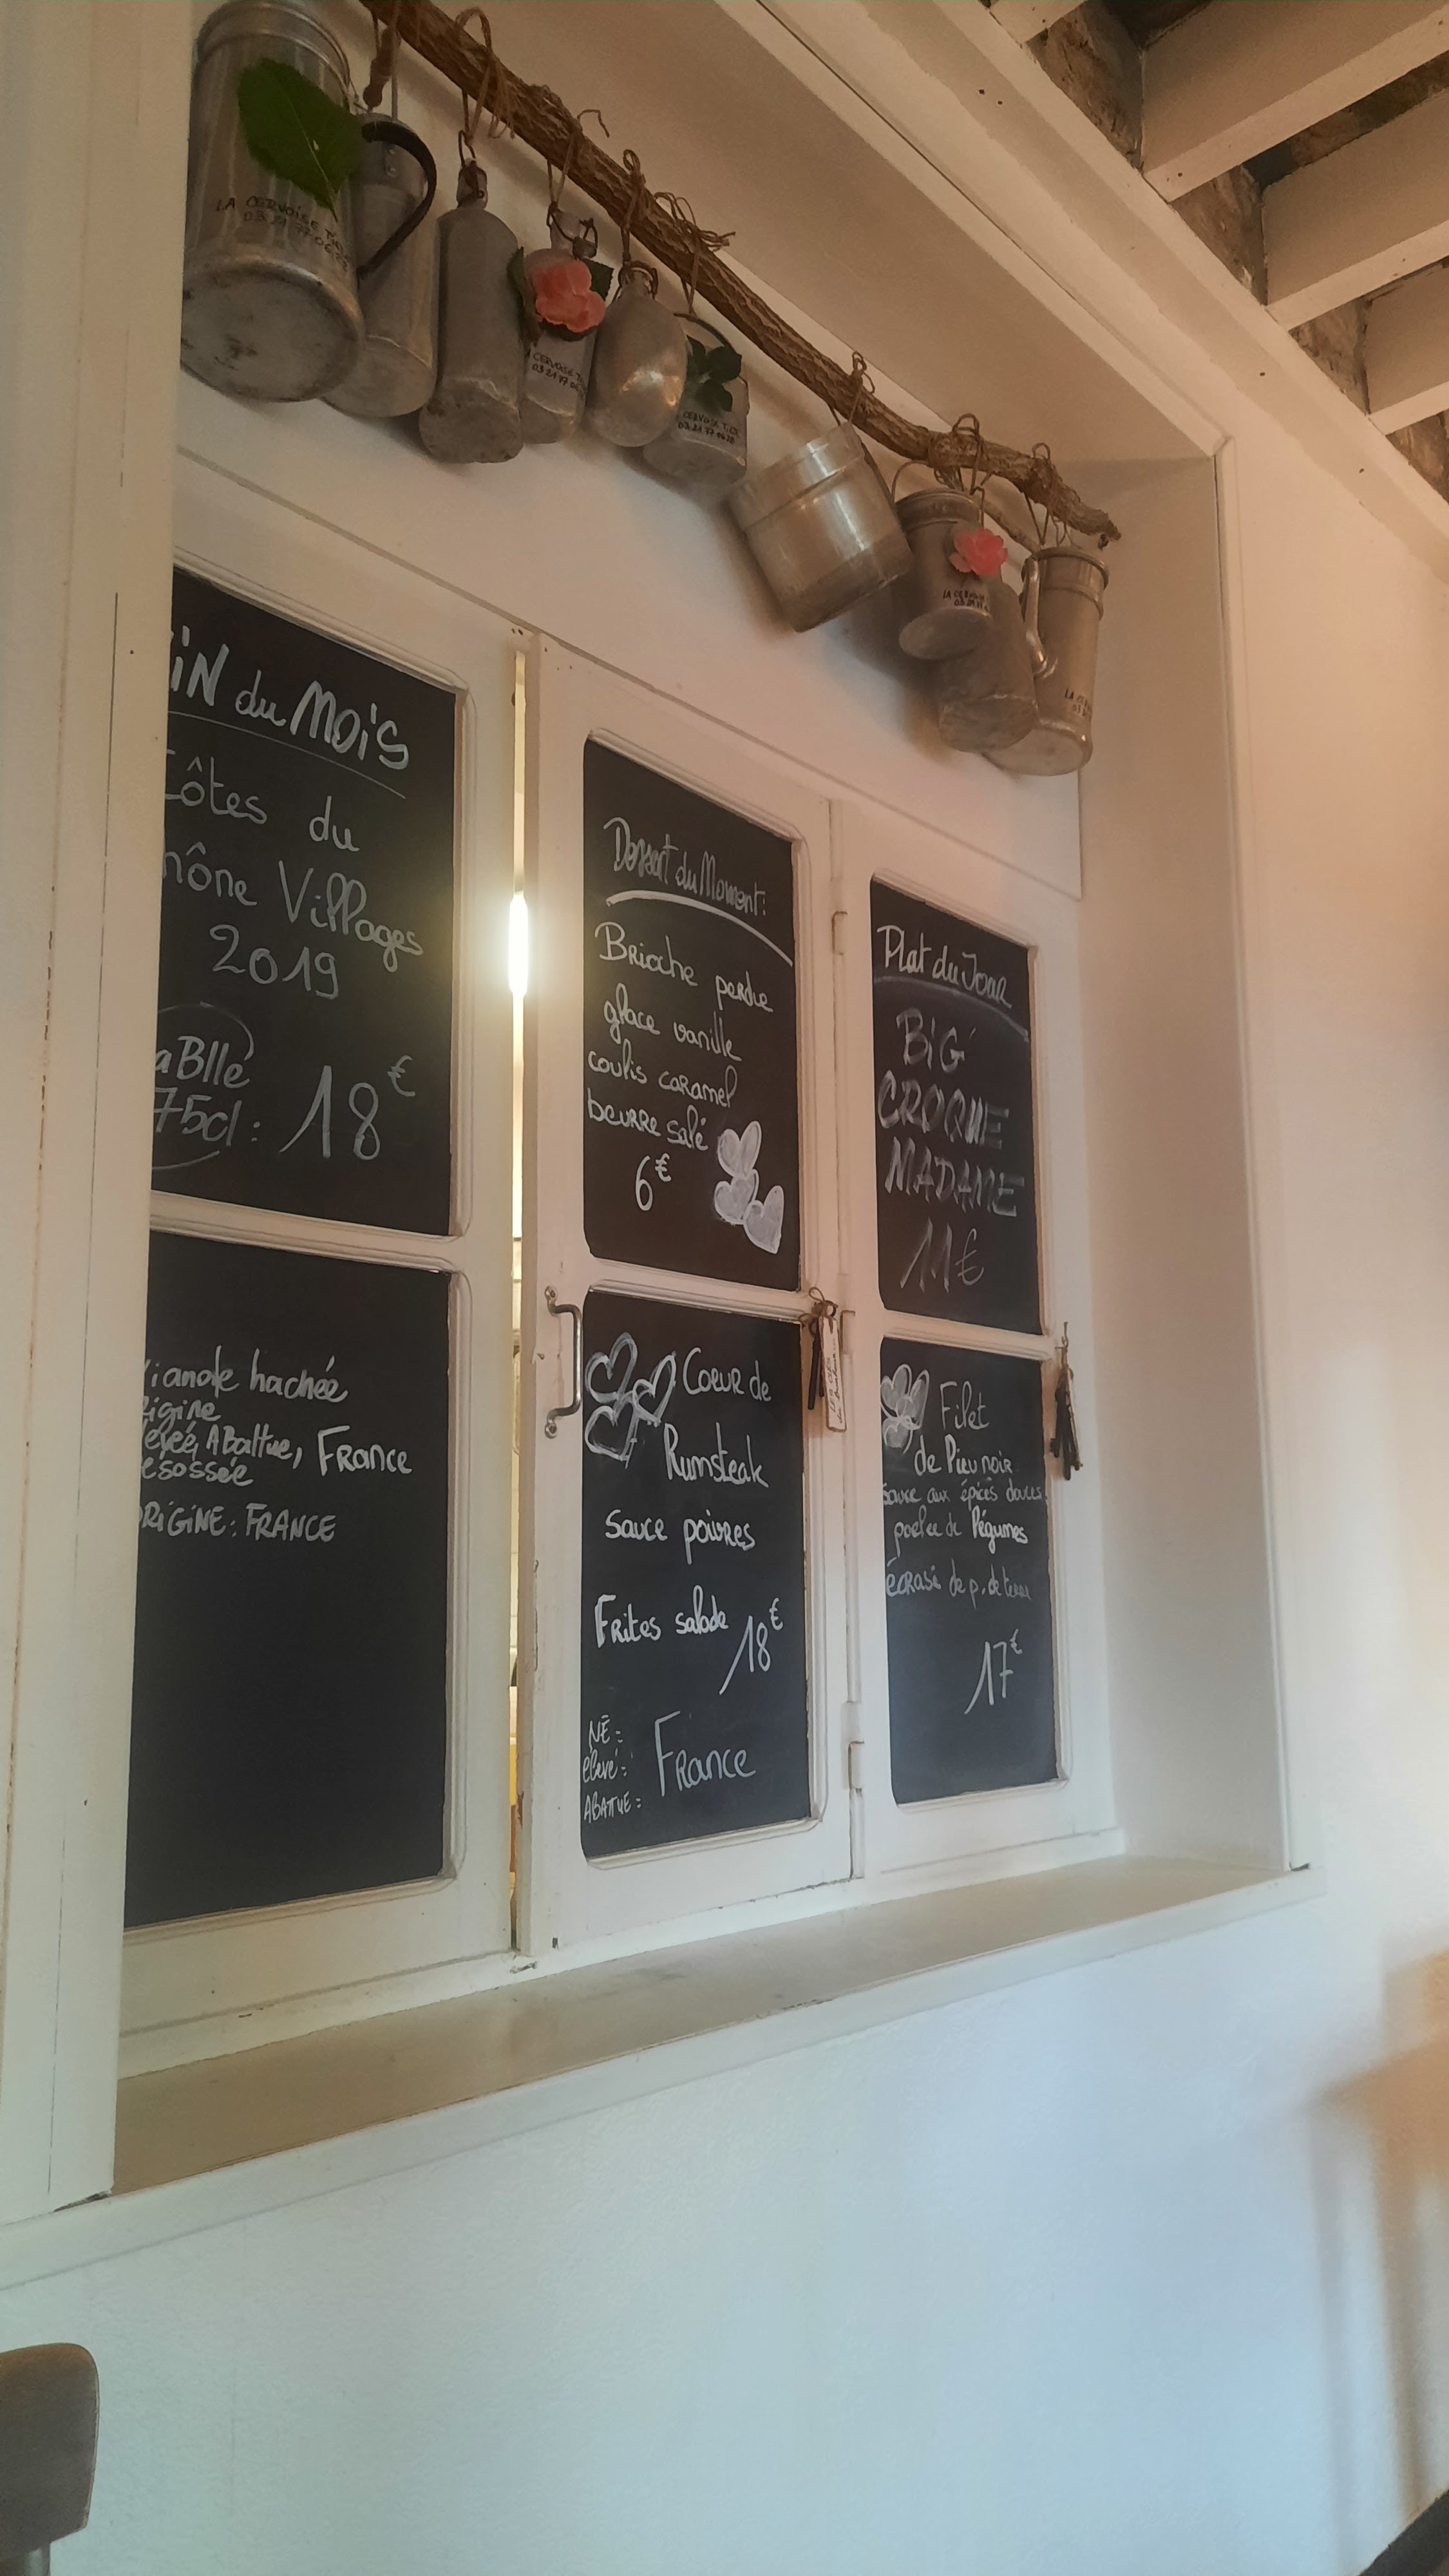 LA CERVOISE
03 21 77 06
CERVOISE
03 21 77 06
CERVOISE
03 21 77 06
LA
LA
03
iN du MOiS
Côtes du
hône Villages
2019
a Blle
75cl : 18€
iande hachée
Rigine
evée, ABattue, France
ésossée
ORiGiNE : FRANCE
Dessert du Moment :
Brioche perdue
glace vanille
coulis caramel
beurre salé
6€
Coeur de
Rumsteak
Sauce poivres
Frites salade
18€
NÉ :
élevé : France
ABATTUE :
Plat du Jour
BiG
CROQUE
MADAME
11€
Filet
de Pieu noir
sauce aux épices douces
poelee de légumes
écrasé de p. de terre
17€